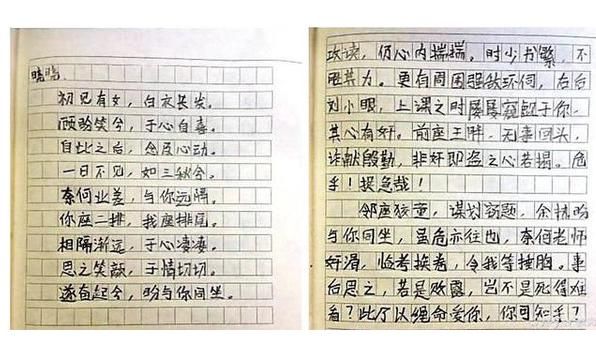 晓晓:
初见有女，白衣长发。
顾盼笑兮，于心自喜。
自此之后，念及心动。
一日不见，如三秋兮。
奈何业差，与你远隔。
你座二排，我座排尾。
相隔渐远，于心凄凄。
思之笑颜，于情切切。
遂奋起兮，盼与你同坐。
攻读，仍心内揣揣。时少书繁，不
胜其力。更有周围强敌环伺，右后
刘小眼，上课之时屡屡窥觑于你，
其心有奸。前座王胖，无事回头，
诈献殷勤，非奸即盗之心若揭。危
乎！挨急哉！
邻座猴童，谋划窃题，余桃盼
与你同坐，虽危亦往也，奈何老师
奸滑，临考换卷，令我等捶胸。事
后思之，若是败露，岂不是死得难
看？此乃以绳命爱你，你可知乎？